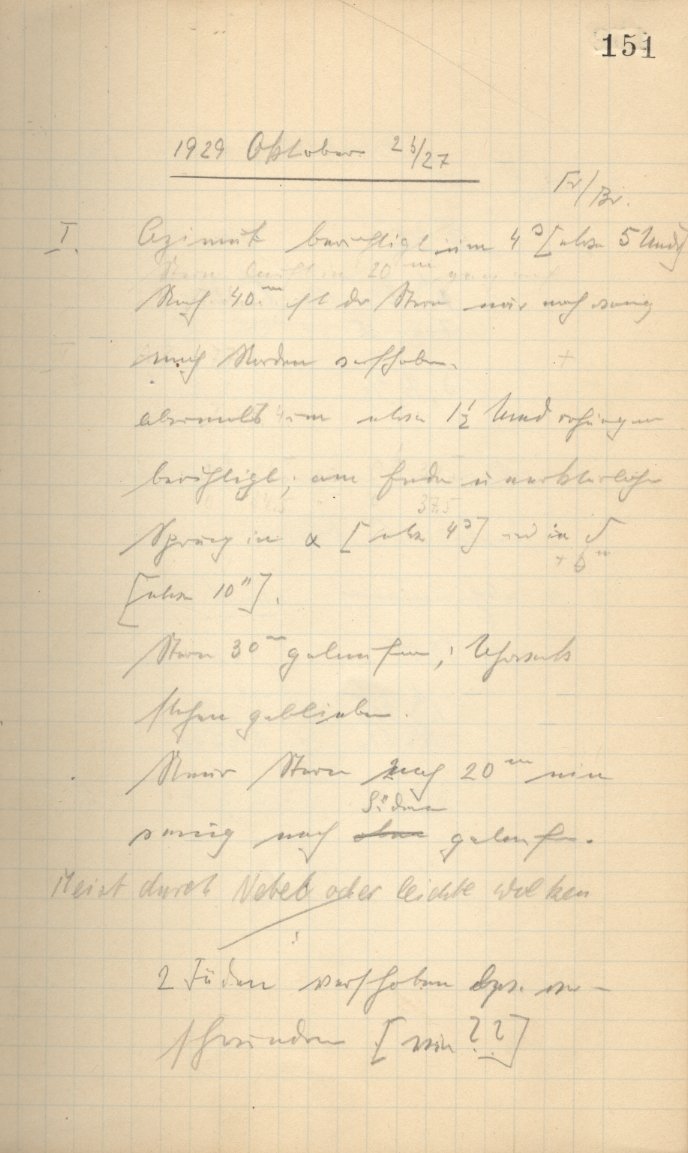 151
1929 Oktober 26/27
Fr/Br.
I. Azimut berichtigt um 4ˢ [etwa 5 Umdr
Nach 40ᵐ ist der Stern nur noch wenig
nach Norden verschoben.
abermals um etwa 1½ Umdrehungen
berichtigt; am Ende unerklärlicher
Sprung in α [etwa 4ˢ] und in δ
[etwa 10"].
Stern 30ᵐ gelaufen,
stehen geblieben.
Neuer Stern nach 20ᵐ ein
Süden
wenig nach gelaufen.
Meist durch Nebel oder leichte Wolken
2 Fäden verschoben bzw. ver-
schwunden [wie ??]